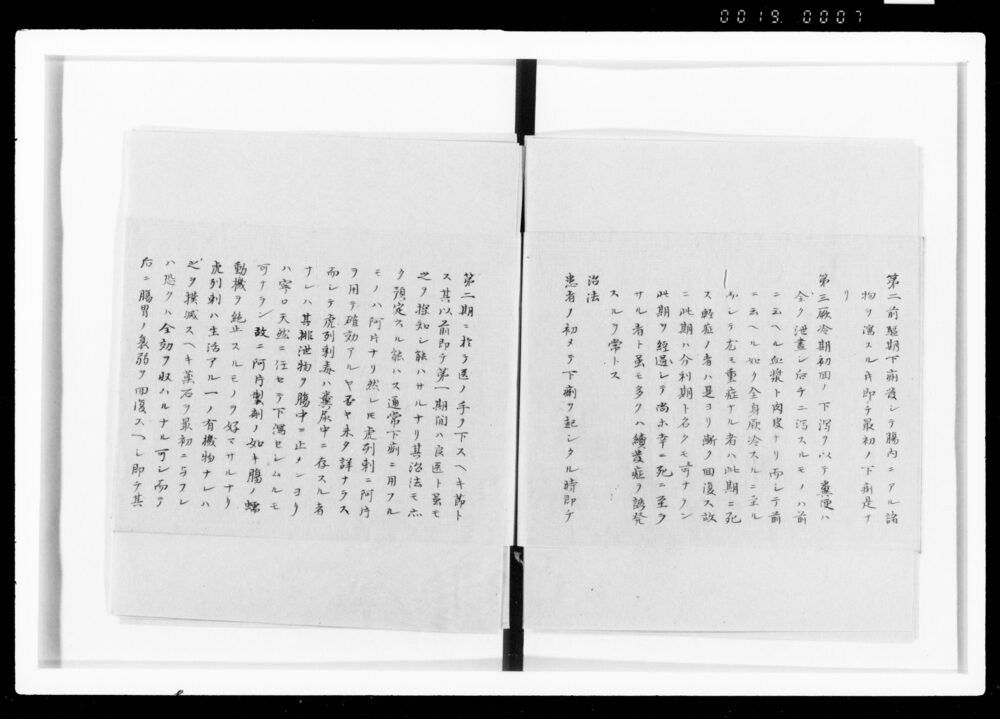 0019 0007
第二前駆期下痢後シテ腸内ニアル諸
物ヲ瀉スルモ即チ最初ノ下痢是ナ
リ
第三厥冷期初回ノ下瀉ヲ以テ糞便ハ
全ク泄盡シ后チニ瀉スルモノハ前
ニ云ヘル血漿ト肉皮ナリ而シテ前
ニ云ヘル如ク全身厥冷スルニ至ル
而シテ尤モ重症ナル者ハ此期ニ死
ス軽症ノ者ハ是ヨリ漸ク回復ス故
ニ此期ハ分利期ト名クモ可ナラン
此期ヲ経過シテ尚ホ幸ニ死ニ至ラ
サル者ト虽モ多クハ續発症ヲ誘発
スルヲ常トス
治法
患者ノ初メテ下痢ヲ起シタル時即チ
第二期ニ於テ医ノ手ヲ下スヘキ節ト
ス其以前即チ第一期間ハ良医ト虽モ
之ヲ探知シ能ハサルナリ其治法モ亦
ク預定スル能ハス通常下痢ニ用フル
モノハ阿片ナリ然レ𪜈虎列刺ニ阿片
ヲ用テ確効アルヤ否ヤ未タ詳ナラス
而シテ虎列刺毒ハ糞尿中ニ存スル者
ナレハ其排泄物ヲ腸中ニ止メンヨリ
ハ寧ロ天然ニ任セテ下瀉セシムルモ
可ナラン故ニ阿片製剤ノ如キ腸ノ蠕
動機ヲ絶止スルモノヲ好マサルナリ
虎列刺ハ生活アル一ノ有機物ナレハ
之ヲ撲滅スヘキ薬石ヲ最初ニ与フレ
ハ恐クハ全効ヲ収ハルナル可シ而テ
后ニ腸胃ノ衰弱ヲ回復スヘシ即チ其